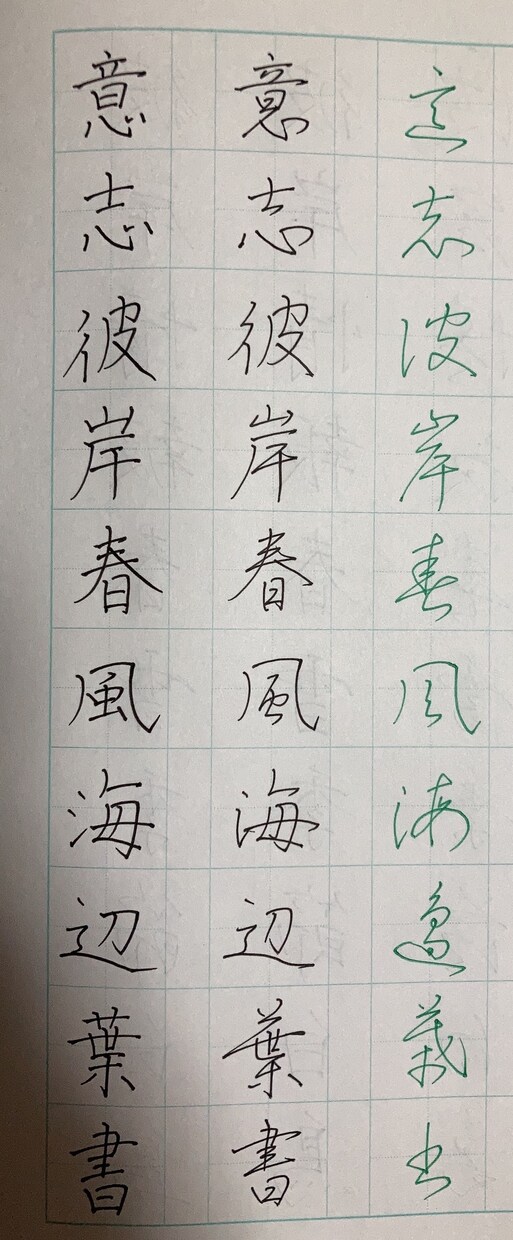 意志彼岸春風海辺葉書
意志彼岸春風海辺葉書
意志彼岸春風海辺葉書